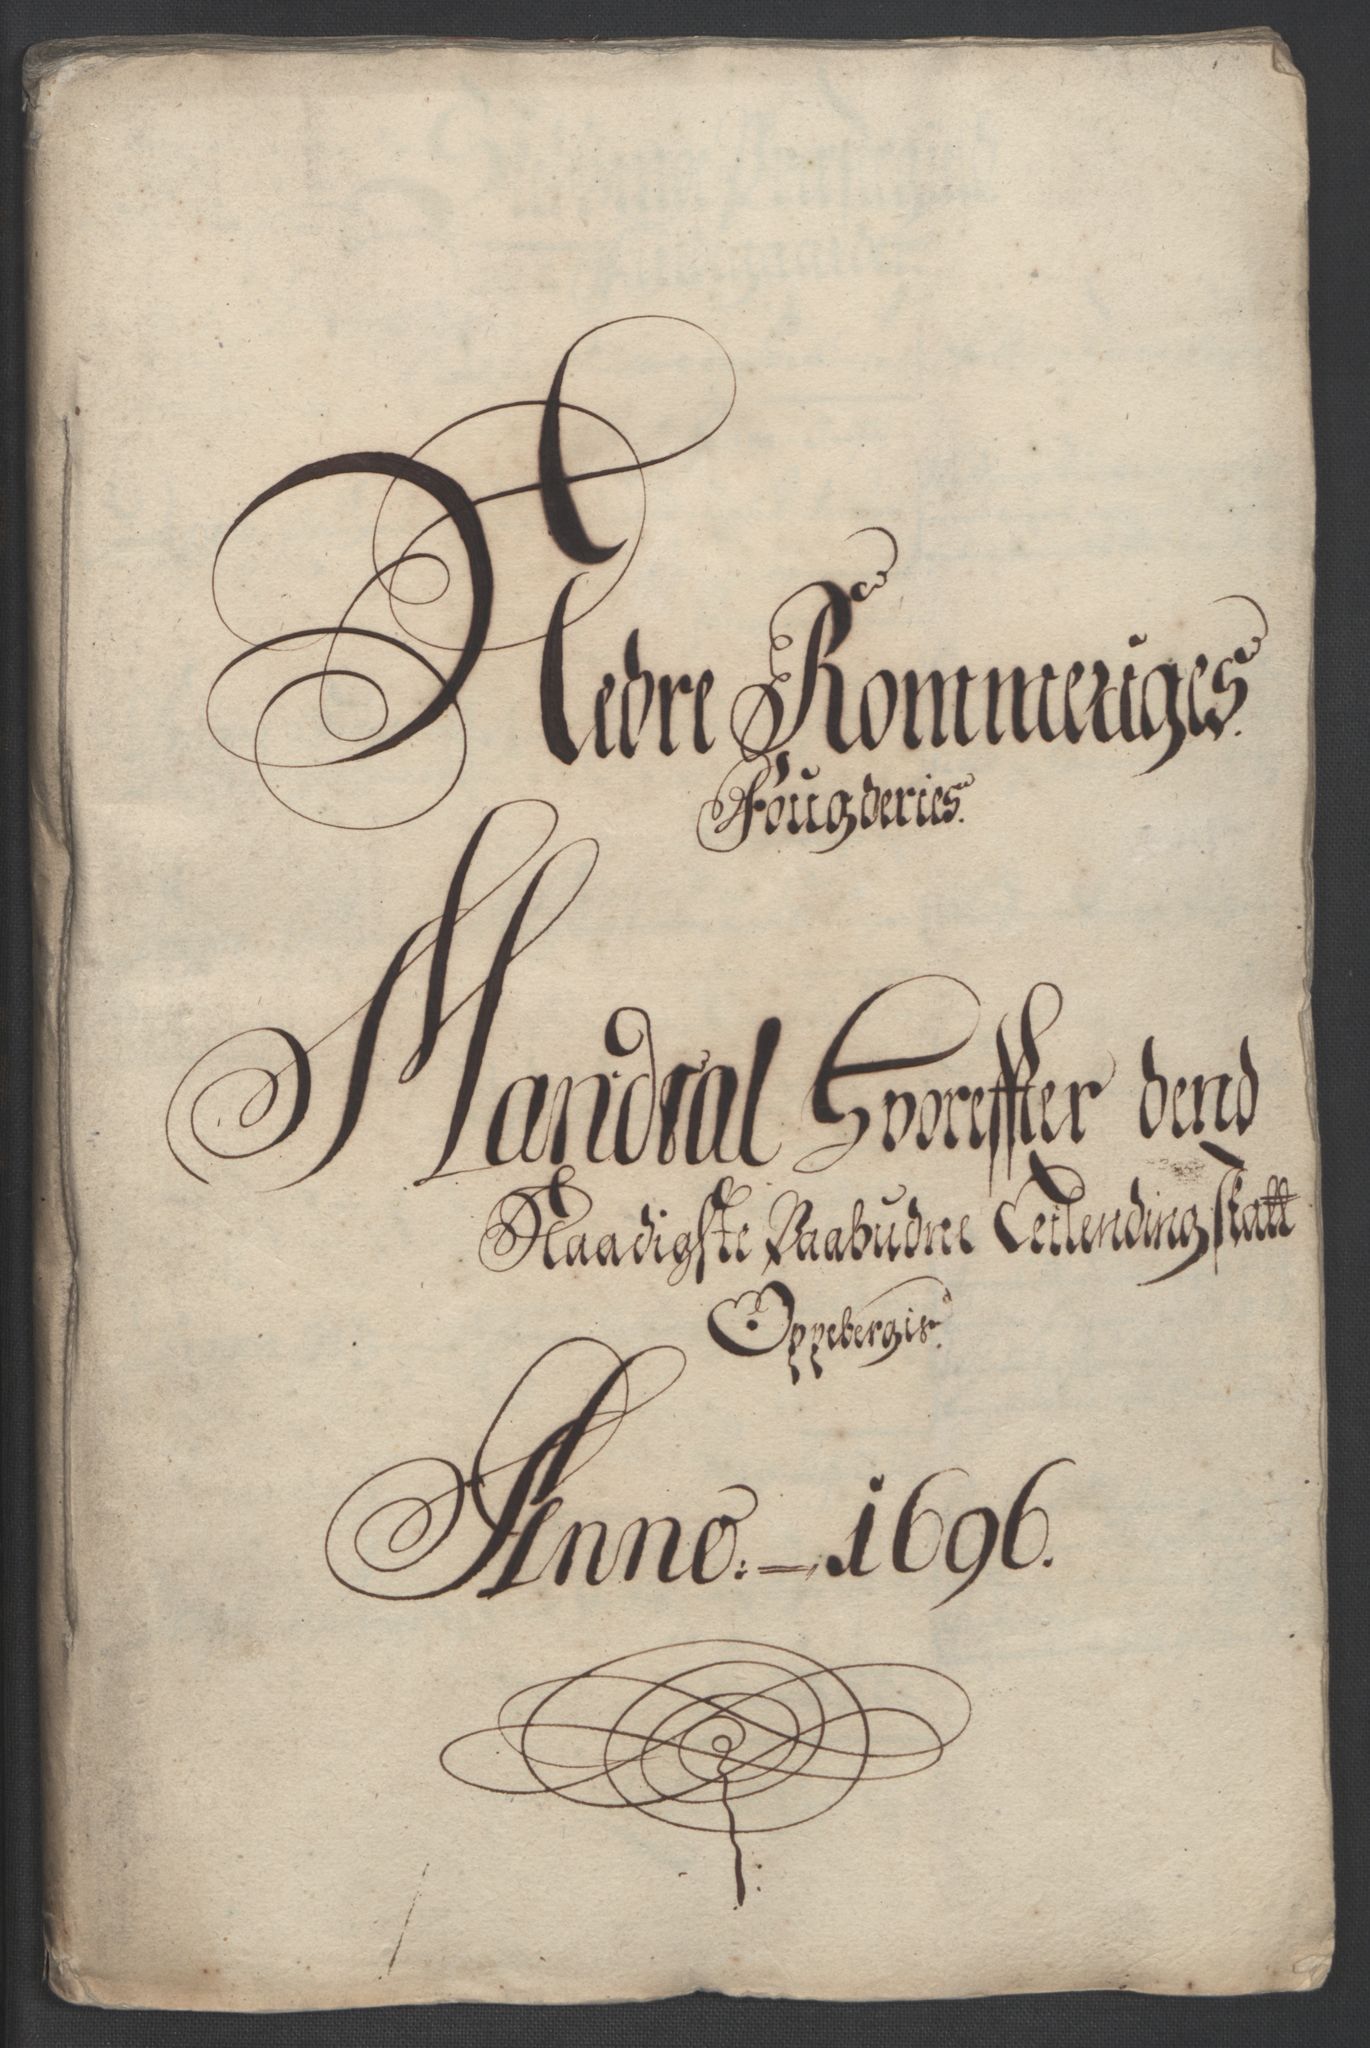 Nedre Rommeriges
Fougderies.
Mandtal Hvoreffter dend
Naadigste Paabudne Leilending skatt
Oppebergis.
Anno. 1696.